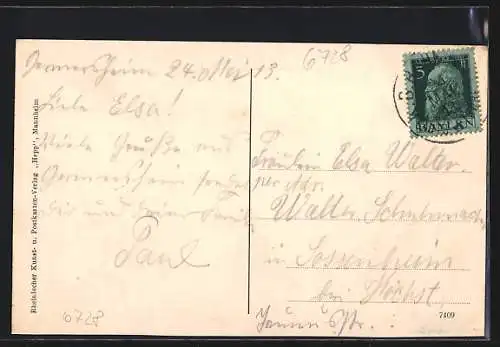 6728
Germersheim 24. Mai 13.
Liebe Elsa!
Viele Grüße aus
Germersheim sendet
Dir und Deiner Familie
Paul
6728
Rheinischer Kunst- u. Postkarten-Verlag „Hepp“, Mannheim
5
BAYERN
Fräulein Elsa Walter
per Adr.
Walter Schuhmacher
in Sossenheim
bei Höchst,
7409